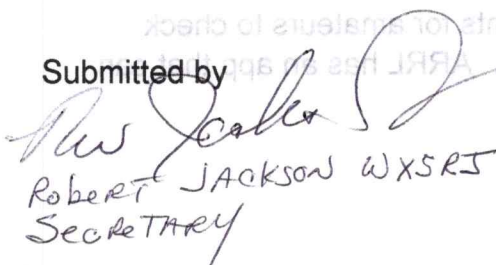 Submitted by
Robert Jackson WX5RJ
Secretary